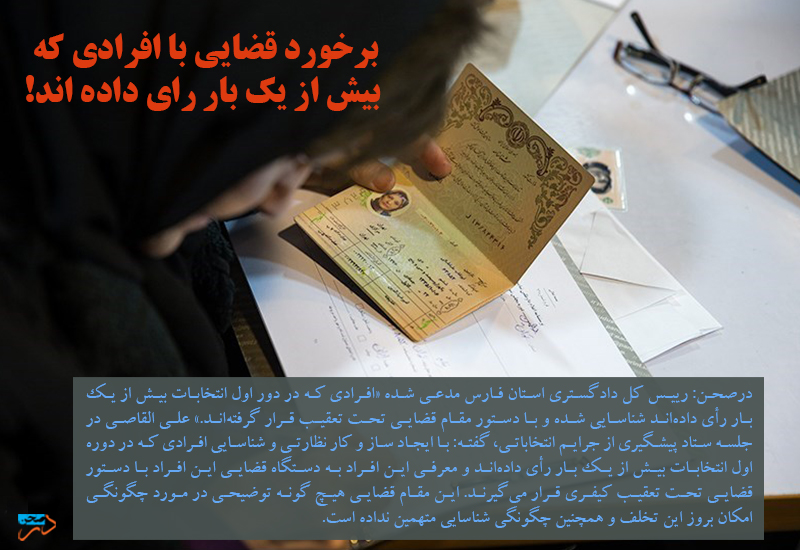 برخورد قضایی با افرادی که
بیش از یک بار رای داده اند!
درصحن: رییس کل دادگستری استان فارس مدعی شده «افرادی که در دور اول انتخابات بیش از یک
بار رأی داده‌اند شناسایی شده و با دستور مقام قضایی تحت تعقیب قرار گرفته‌اند.» علی القاصی در
جلسه ستاد پیشگیری از جرایم انتخاباتی، گفته: با ایجاد ساز و کار نظارتی و شناسایی افرادی که در دوره
اول انتخابات بیش از یک بار رأی داده‌اند و معرفی این افراد به دستگاه قضایی این افراد با دستور
قضایی تحت تعقیب کیفری قرار می‌گیرند. این مقام قضایی هیچ گونه توضیحی در مورد چگونگی
امکان بروز این تخلف و همچنین چگونگی شناسایی متهمین نداده است.